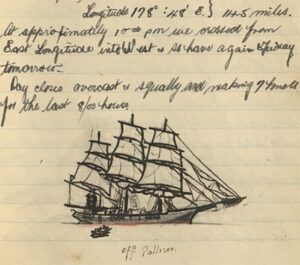 Longitude 178°:48' E.} 145 miles.
At approximately 10 00 pm we crossed from
East Longitude into West & so have again Friday
tomorrow.
Day closes overcast & squally and making 7 knots
for the last 8/00 hours.
off